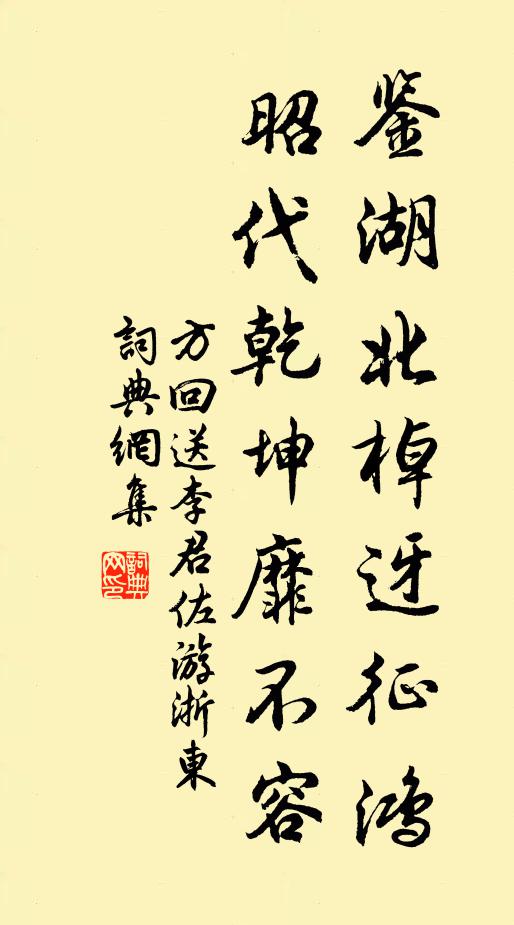 鉴湖北棹迓征鸿
昭代乾坤靡不容
方回送李君佐游浙東
詞典網集
詞典网印